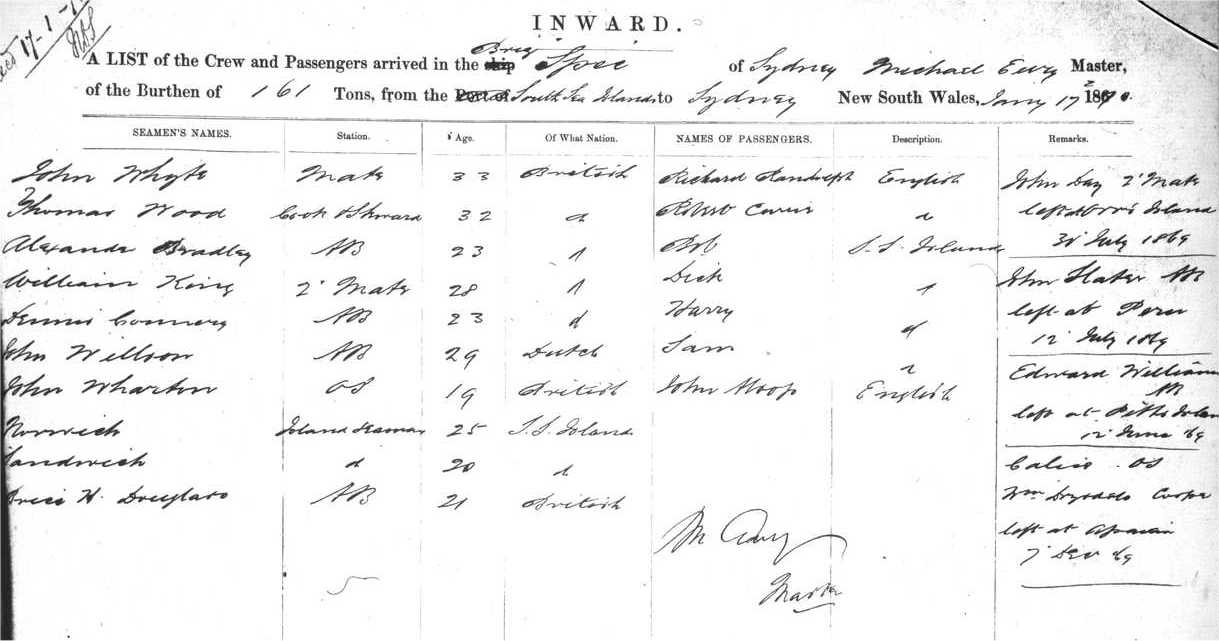 17-1-
INWARD.
Brig
A LIST of the Crew and Passengers arrived in the ship Spec of Sydney Michael Master,
of the Burthen of 161 Tons, from the Port of South Sea Islands to Sydney New South Wales, Jany 17 1870.
SEAMEN'S NAMES. Station. Age. Of What Nation. NAMES OF PASSENGERS. Description. Remarks.
John Whyte Mate 33 British Richard Randolph English John Day 2' Mate
Thomas Wood Cook & Steward 32 d Robert d left Island
Alexander Bradley AB 23 d Bob S.S. Islands 30 July 1869
William King 2' Mate 28 d Dick d John Slater AB
Dennis Connery AB 23 d Harry d left at Peru
John Willson AB 29 Dutch Sam d 12' July 1869
John Wharton OS 19 British John Stoop English Edward William
AB
Norwich Island Seaman 25 S.S. Island left at Pitts Island
12' June 69
Sandwich d 20 d Calico . OS
H. Douglass AB 21 British Wm Drysdale Cooper
left at Apaian
7' Dec 69
M
Master